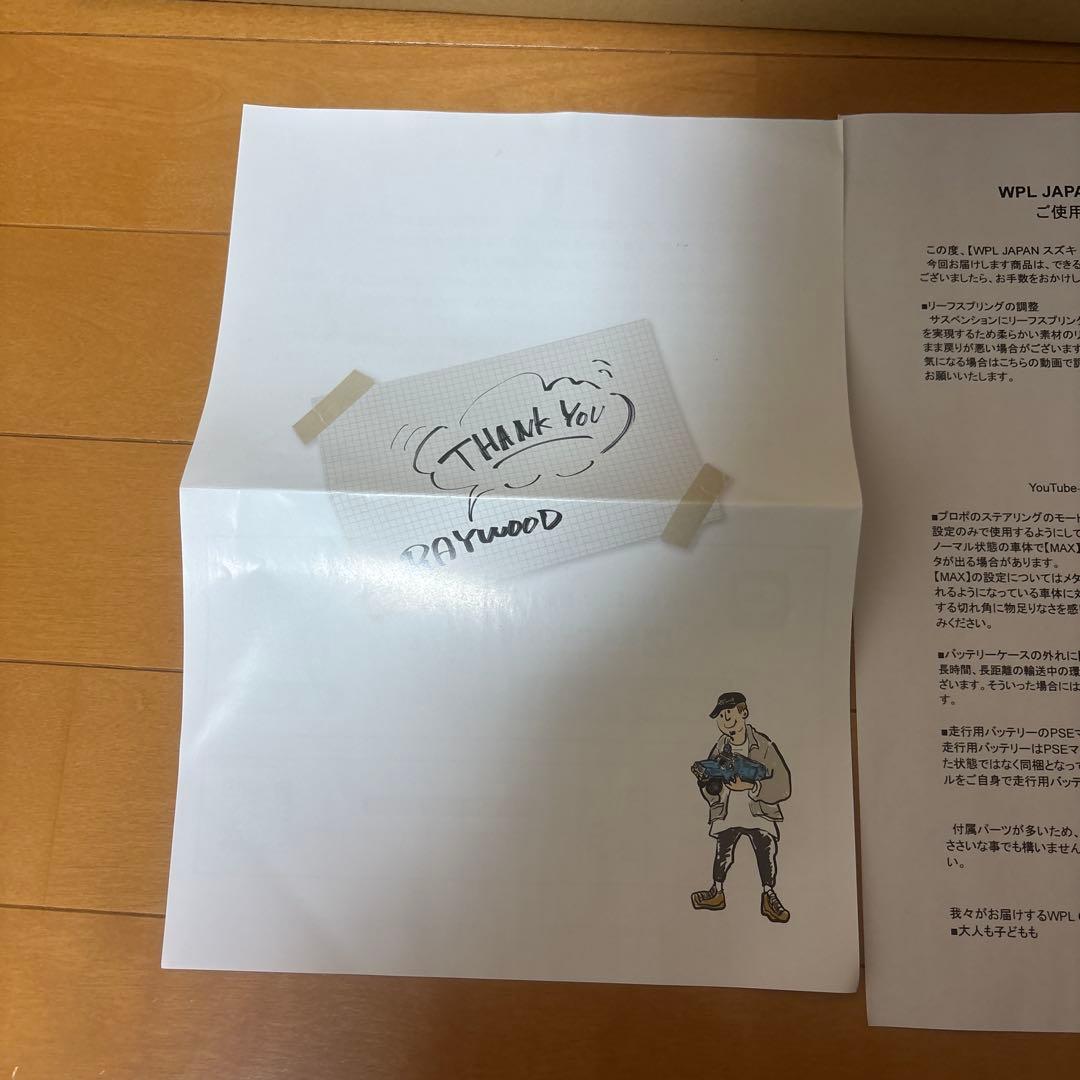 THANK YOU
RAYWOOD
WPL JAPA
ご使用
この度、【WPL JAPAN スズキ
今回お届けします商品は、できる
ございましたら、お手数をおかけし
■リーフスプリングの調整
サスペンションにリーフスプリング
を実現するため柔らかい素材のリ
まま戻りが悪い場合がございます
気になる場合はこちらの動画で調
お願いいたします。
YouTube-
■プロポのステアリングのモード
設定のみで使用するようにして
ノーマル状態の車体で【MAX】
タが出る場合があります。
【MAX】の設定についてはメタ
れるようになっている車体に対
する切れ角に物足りなさを感じ
みください。
■バッテリーケースの外れに
長時間、長距離の輸送中の環
ざいます。そういった場合には
す。
■走行用バッテリーのPSEマ
走行用バッテリーはPSEマ
た状態ではなく同梱となって
ルをご自身で走行用バッテ
付属パーツが多いため、
ささいな事でも構いません
い。
我々がお届けするWPL
■大人も子どもも